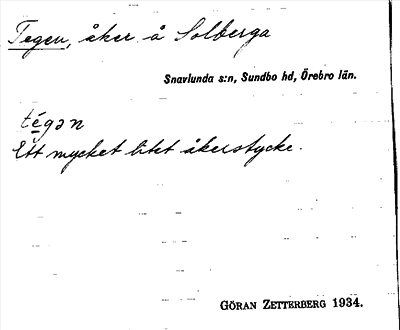 Tegen, åker å Solberga
Snavlunda s:n, Sundbo hd, Örebro län.
tégən
Ett mycket litet åkerstycke.
GÖRAN ZETTERBERG 1934.